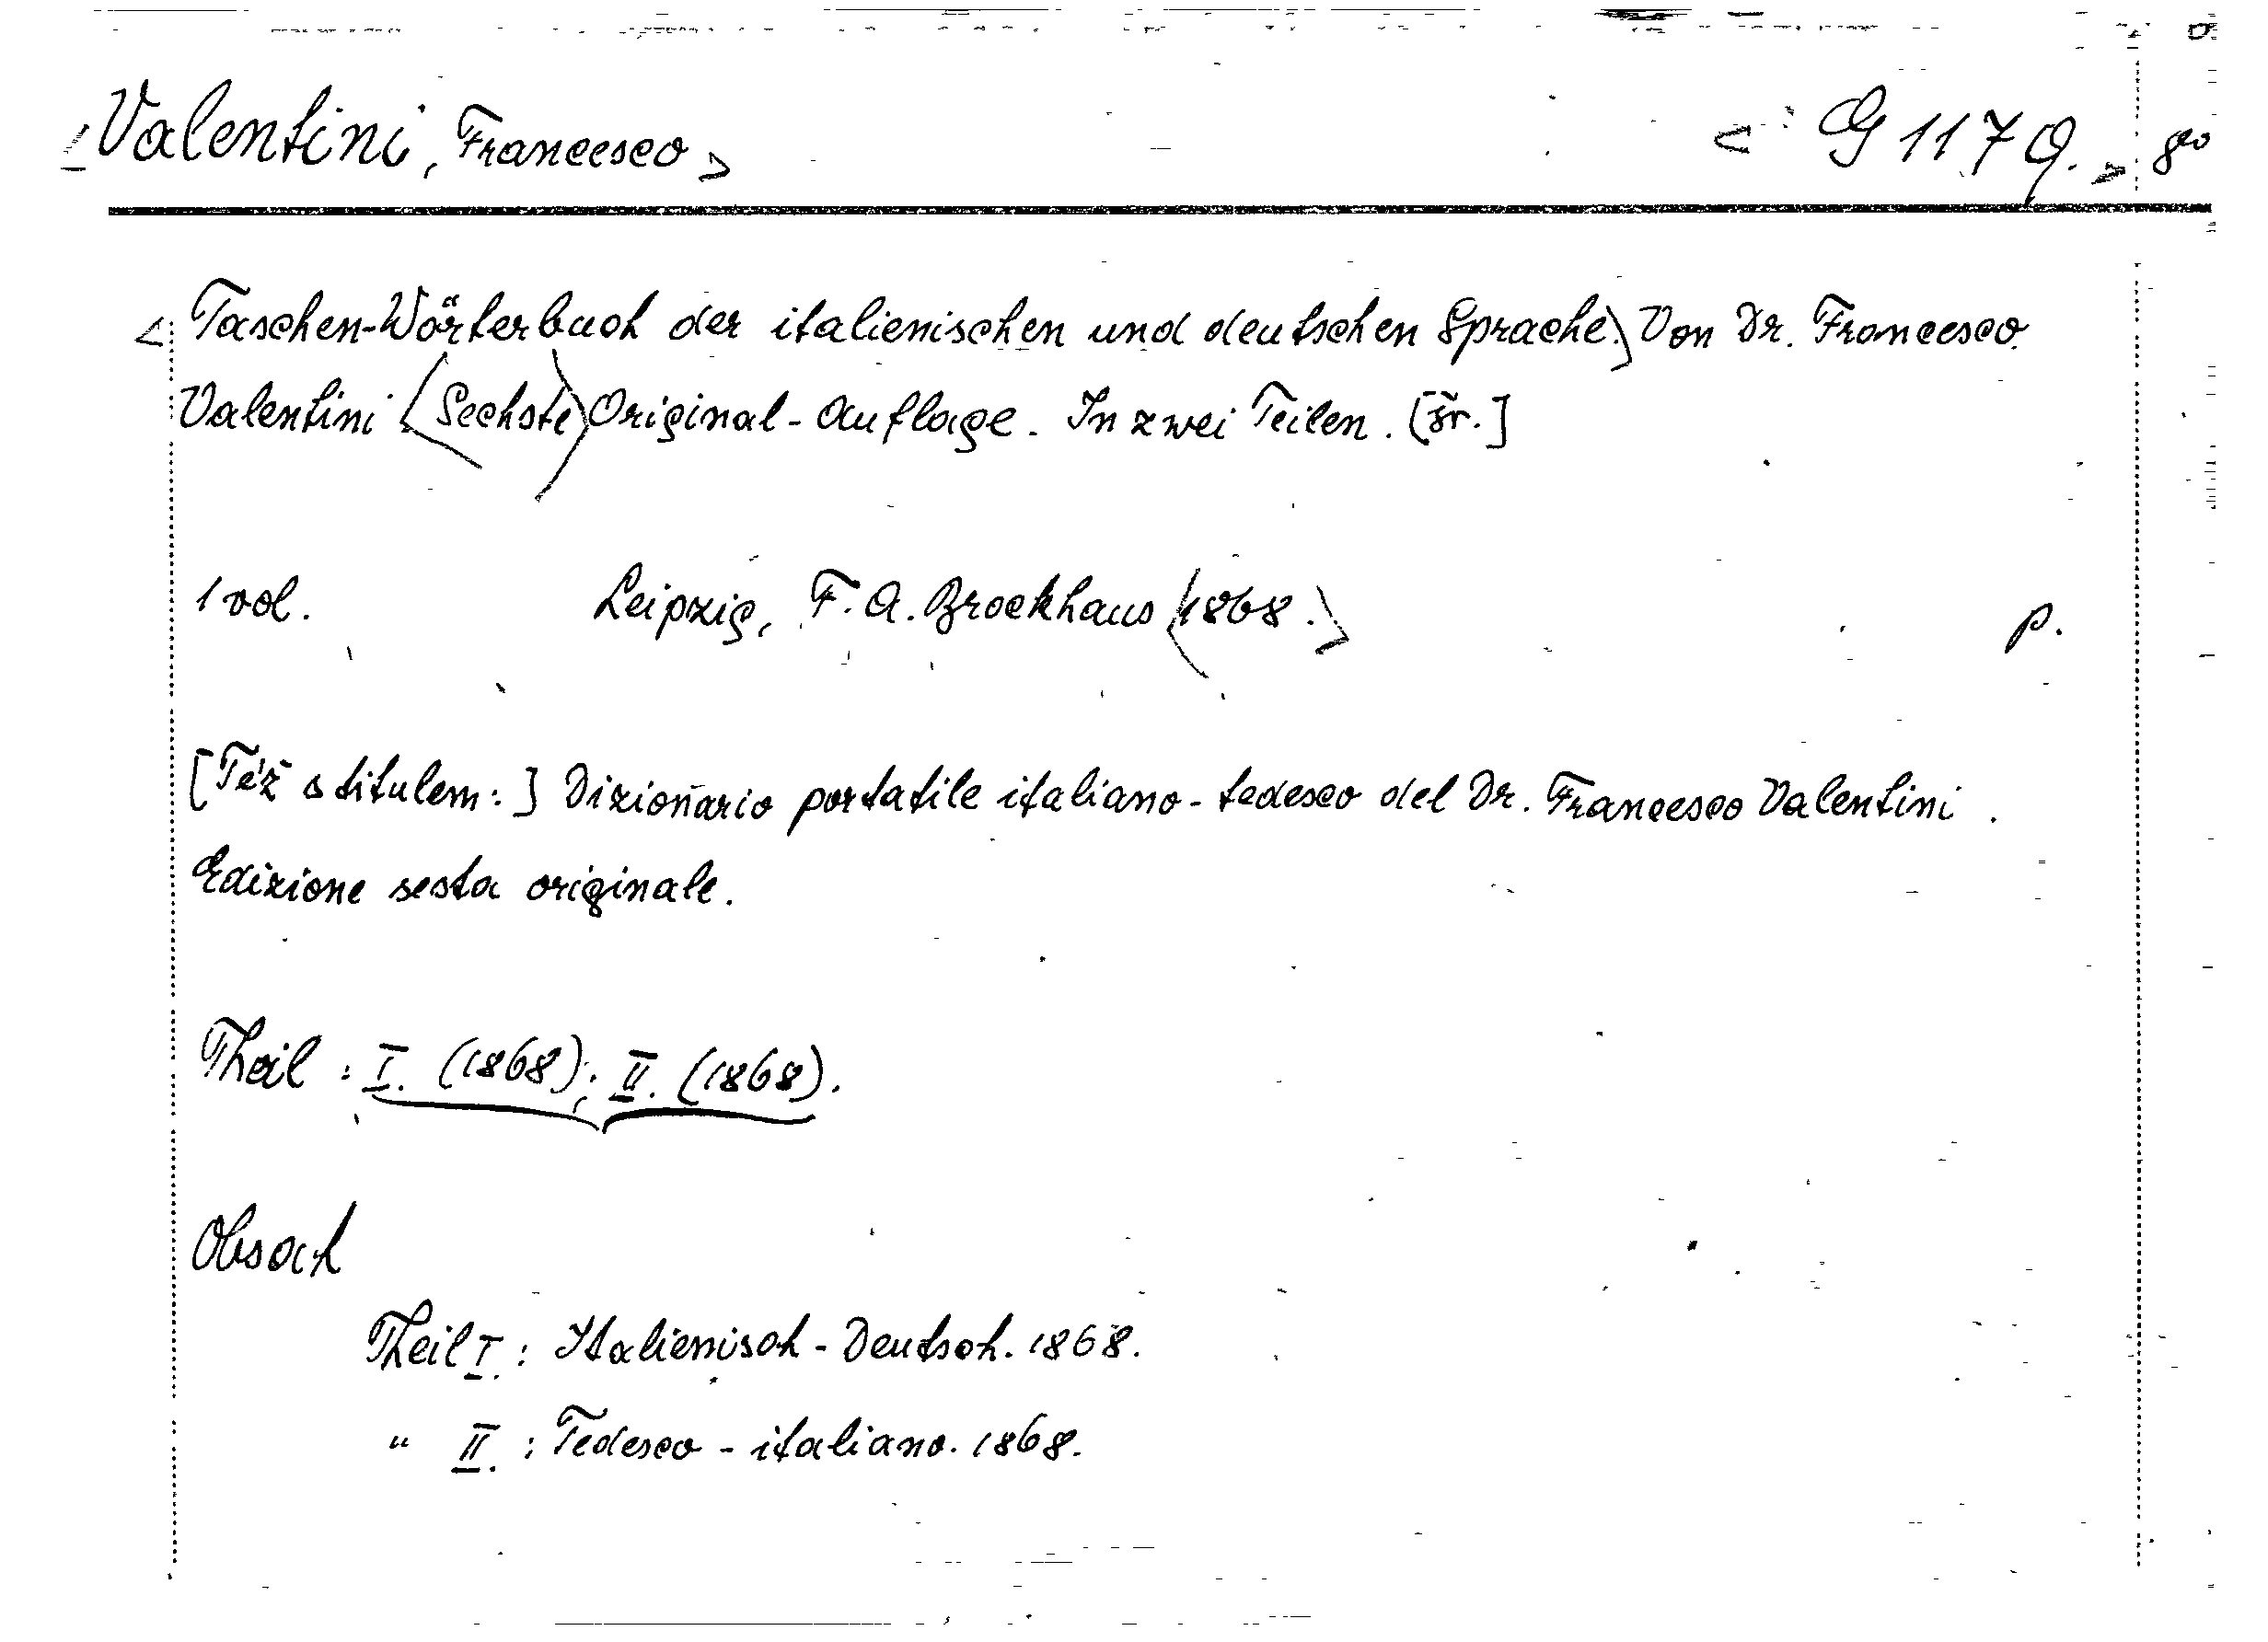 <Valentini, Francesco> <G 1179.> 8°
<Taschen-Wörterbuch der italienischen und deutschen Sprache.> Von Dr. Francesco
Valentini. <Sechste> Original-Auflage. In zwei Teilen. [šv.]
1 vol. Leipzig, F. A. Brockhaus <1868.> p.
[Též s titulem:] Dizionario portatile italiano-tedesco del Dr. Francesco Valentini.
Edizione sesta originale.
Theil: I. (1868); II. (1868).
Obsah
Theil I.: Italienisch-Deutsch. 1868.
" II.: Tedesco-italiano. 1868.